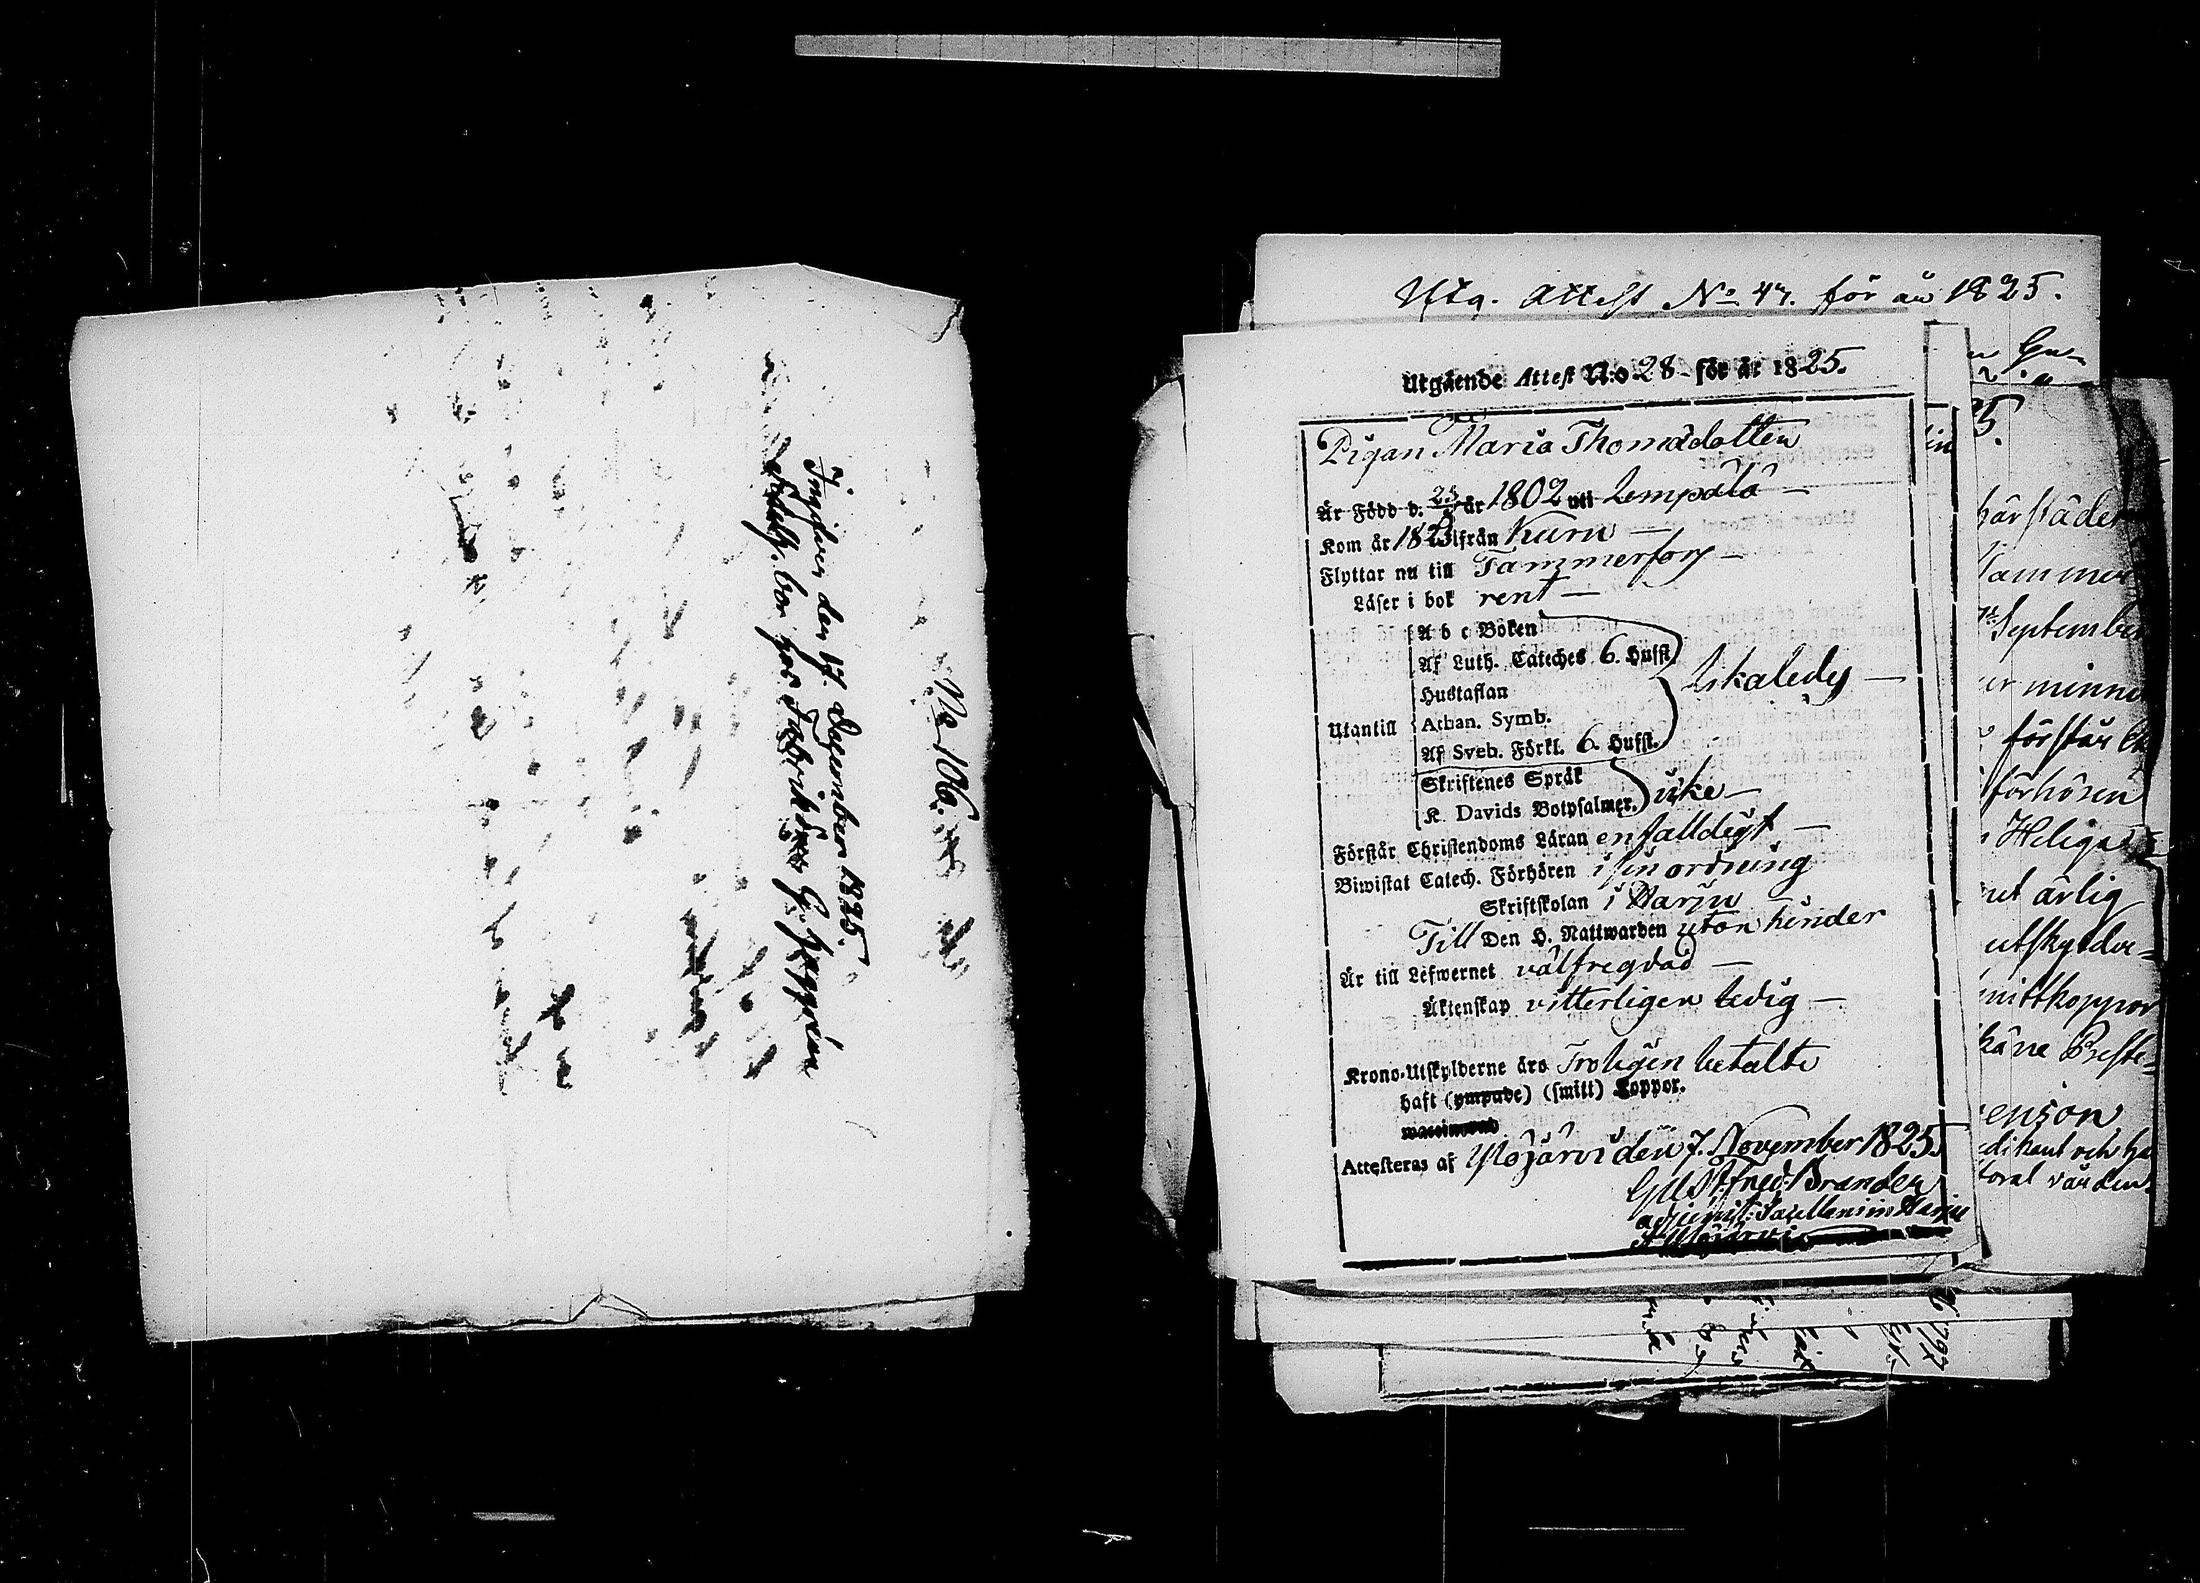 No 106.
Ingifven den 17. December 1825.
bor hos Fabrikören G. Haggrén
Utg. Attest No 47. för år 1825.
Utgående Attest N:o 28 för år 1825.
Pigan Maria Thomædotter
Är Född d. 25/5 år 1802 uti Lempälä
Kom år 1825 ifrån Kuru
Flyttar nu till Tammerfors
Läser i bok rent
Utantill
A b c Boken
Af Luth. Cateches 6. Hufst.
Hustaflan
Athan. Symb.
Af Sveb. Förkl. 6. Hufst.
Skriftenes Språk
K. Davids Botpsalmer. icke
Förstår Christendoms Läran enfalldigt
Biwistat Catech. Förhören i sin ordning
Skriftskolan i Harju
Till Den H. Nattwarden utan hinder
Är till Lefwernet välfregdad
Äktenskap vitterligen ledig
Krono-Utskylderne äro Troligen betalte
haft (ympade) (smitt) Koppor.
waccinerad
Attesteras af Ylöjärvi den 7. November 1825.
Gust. Fred: Brander
adjunct: Sacellanim: Harju
& Ylöjärvi
25.
härstädes
Tammer
September
minne
förstår
förhören
Helige
ärlig
utskylder
smittkoppor
käne Preste
enson
dikant och
toral vården.